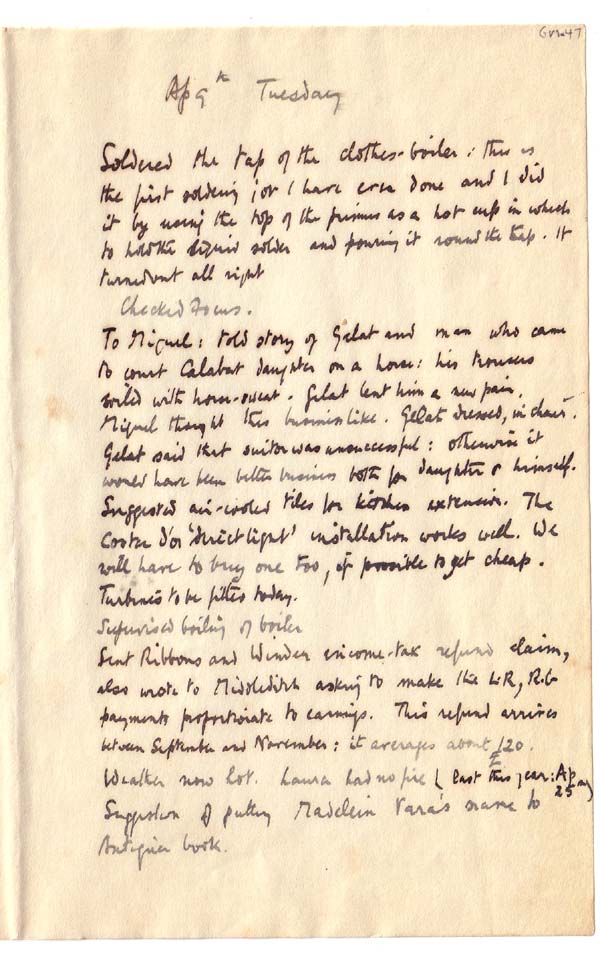 Ap 9th Tuesday
Soldered the tap of the clothes-boiler: this is
the first soldering job I have ever done and I did
it by using the top of the primus as a hot cup in which
to hold the liquid solder and pouring it round the tap. It
turned out all right
Checked Focus.
To Miguel: told story of Gelat and man who came
to court Calabat daughter on a horse: his trousers
soiled with horse-sweat. Gelat lent him a new pair.
Miguel thought this businesslike. Gelat dressed, in chair.
Gelat said that suitor was unsuccessful: otherwise it
would have been better business both for daughter & himself.
Suggested air-cooled tiles for kitchen extension. The
Costa d'or 'direct light' installation works well. We
will have to buy one too, if possible to get cheap.
Turbines to be fitted today.
Supervised boiling of boiler
Sent Ribbons and Winder income-tax refund claim,
also wrote to Middleditch asking to make the LR, RG
payments proportionate to earnings. This refund arrives
between September and November: it averages about £120.
Weather now hot. Laura had no fire (last this year: Ap 25
Suggestion of putting Madelein Vara's name to
Antigua book.